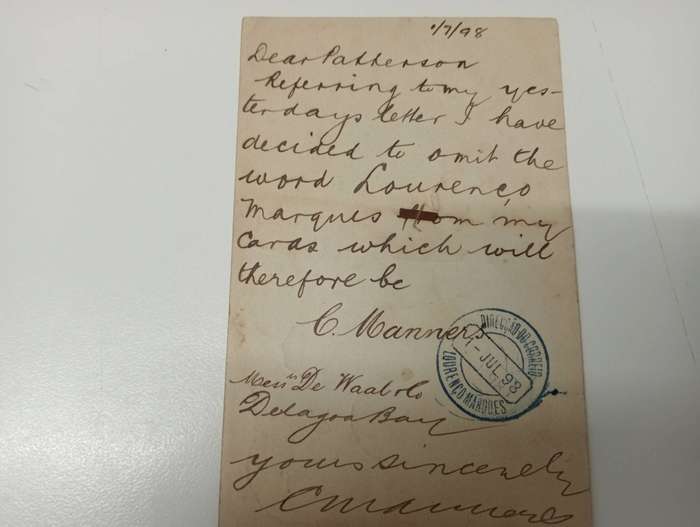 1/7/98
Dear Patherson
Referring to my yes-
terdays letter I have
decided to omit the
word Lourenço
Marques from my
cards which will
therefore be
C. Manners
Messrs De Waal & Co
Delagoa Bay
yours sincerely
C Manners
DIRECÇÃO DO CORREIO
1-JUL 98
LOURENÇO MARQUES